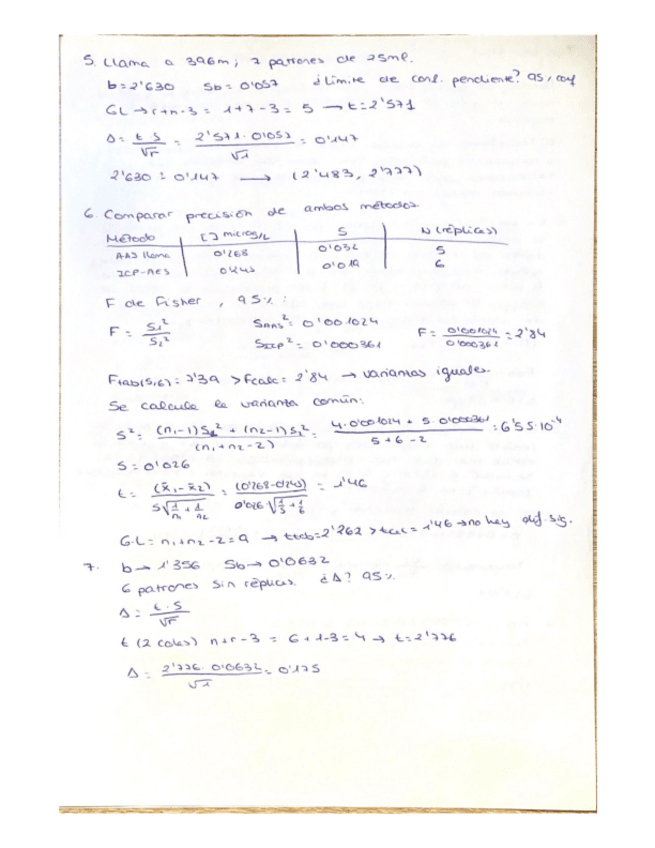 5. Llama a 396m; 7 patrones de 25ml.
b=2'630 Sb=0'057 ¿límite de conf. pendiente? 95% conf
GL → r+n-3 = 1+7-3 = 5 → t=2'571
Δ = t·S/√r = 2'571·0'057/√1 = 0'147
2'630 ± 0'147 → (2'483, 2'777)
6. Comparar precisión de ambos métodos.
Método [ ] microg/L S N (réplicas)
AAS llama 0'268 0'032 5
ICP-AES 0'243 0'019 6
F de Fisher, 95%:
F = S₁²/S₂² SAAS² = 0'001024 SICP² = 0'000361 F = 0'001024/0'000361 = 2'84
Ftab(5,6) = > Fcalc = 2'84 → varianzas iguales.
Se calcula la varianza común:
S² = (n₁-1)S₁² + (n₂-1)S₂²/(n₁+n₂-2) = 4·0'001024 + 5·0'000361/5+6-2 = 6'55·10⁻⁴
S = 0'026
t = (x̄₁-x̄₂)/S√1/n₁+1/n₂ = (0'268-0'243)/0'026√1/5+1/6 = 1'46
G.L = n₁+n₂-2 = 9 → ttab = 2'262 > tcal = 1'46 → no hay dif. sig.
7. b → 1'356 Sb → 0'0632
6 patrones sin réplicas. ¿Δ? 95%
Δ = t·S/√r
t (2 colas) n+r-3 = 6+1-3 = 4 → t=2'776
Δ = 2'776·0'0632/√1 = 0'175